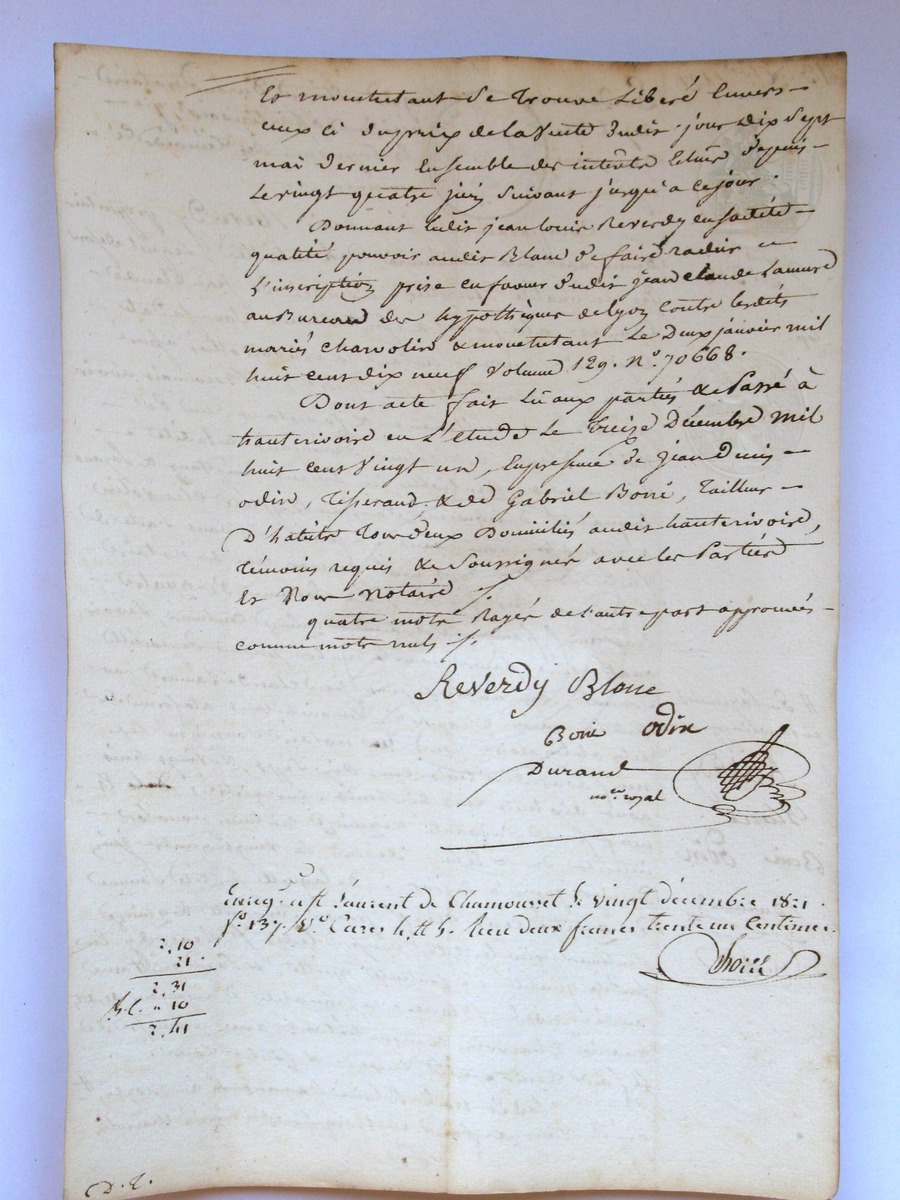 Et monchetant se trouve Libéré Envers
eux ci du prix de la Vente dudit jour dix Sept
mai dernier Ensemble des intérêts d'iceux depuis
Le vingt quatre juin suivant jusqu'à ce jour.
Donnant ledit jean Louis Reverdy en sa dite
qualité pouvoir audit Blanc de faire radier
L'inscription prise en faveur dudit jean claude
au Bureau des hypothèques de Lyon contre lesdits
mariés & monchetant Le Deux janvier mil
huit cent dix neuf Volume 129. N°. 70668.
Dont acte fait Lu aux parties & Passé à
hauterivoire en L'étude Le treize Décembre mil
huit cent vingt un, En présence de jean Denis
odin, Tisserand & de Gabriel Boné, Tailleur
D'habits Tous deux Domiciliés audit hauterivoire,
témoins requis & Soussignés avec les Parties
Et Nous Notaire
quatre mots Rayés de l'autre part approuvés
comme mots nuls
Reverdy Blanc
Boné odin
Durand
no.re royal
Enreg. à St Laurent de Chamousset le vingt décembre 1821.
f° 137. V° Cases 4 & 5. Reçu deux francs trente un Centimes.
2,10
21
2,31
10
2,41
D. L.